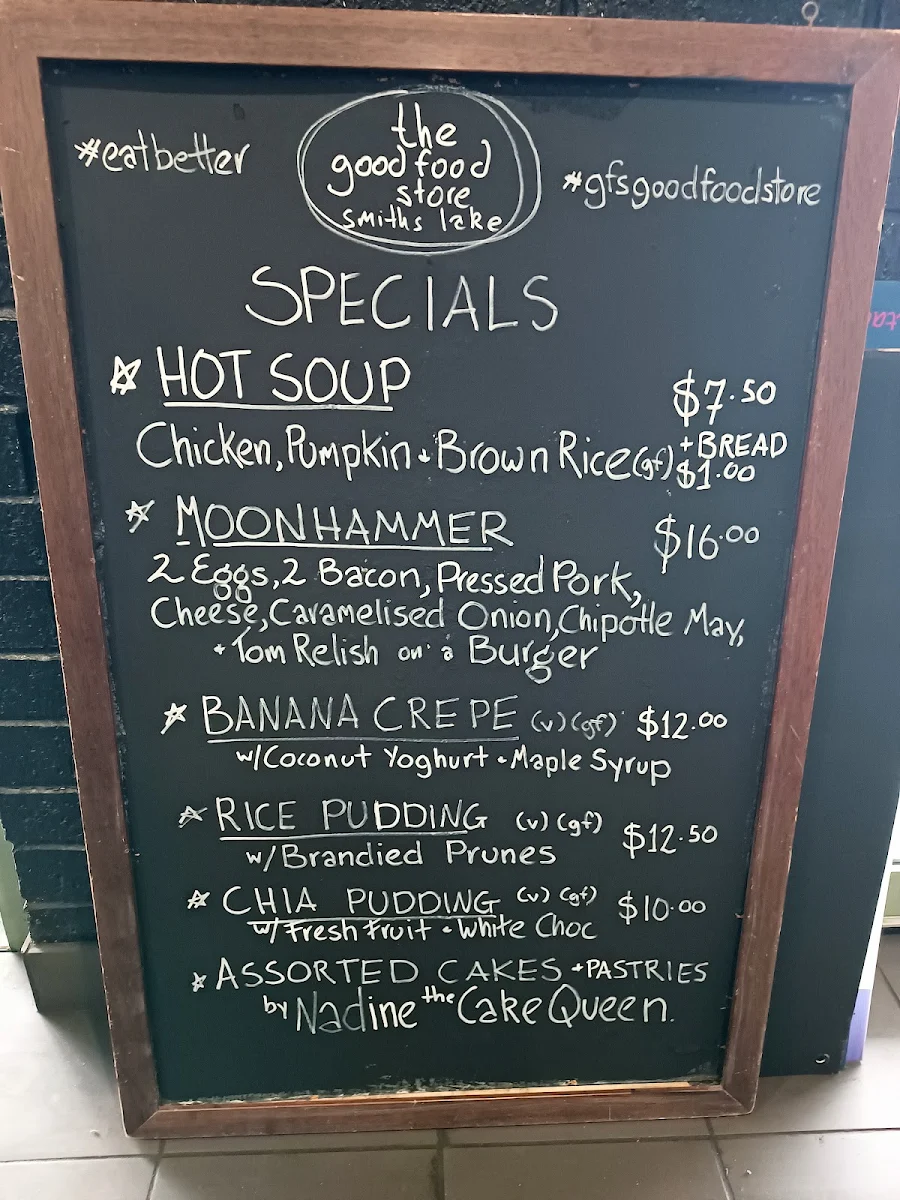 #eatbetter
the
good food
store
smiths lake
#gfsgoodfoodstore
SPECIALS
HOT SOUP $7.50
Chicken, Pumpkin + Brown Rice (gf) +BREAD
$1.00
MOONHAMMER $16.00
2 Eggs, 2 Bacon, Pressed Pork,
Cheese, Caramelised Onion, Chipotle May,
+ Tom Relish on a Burger
BANANA CREPE (v) (gf) $12.00
w/Coconut Yoghurt + Maple Syrup
RICE PUDDING (v) (gf) $12.50
w/Brandied Prunes
CHIA PUDDING (v) (gf) $10.00
w/ Fresh Fruit + White Choc
ASSORTED CAKES + PASTRIES
by Nadine the Cake Queen.